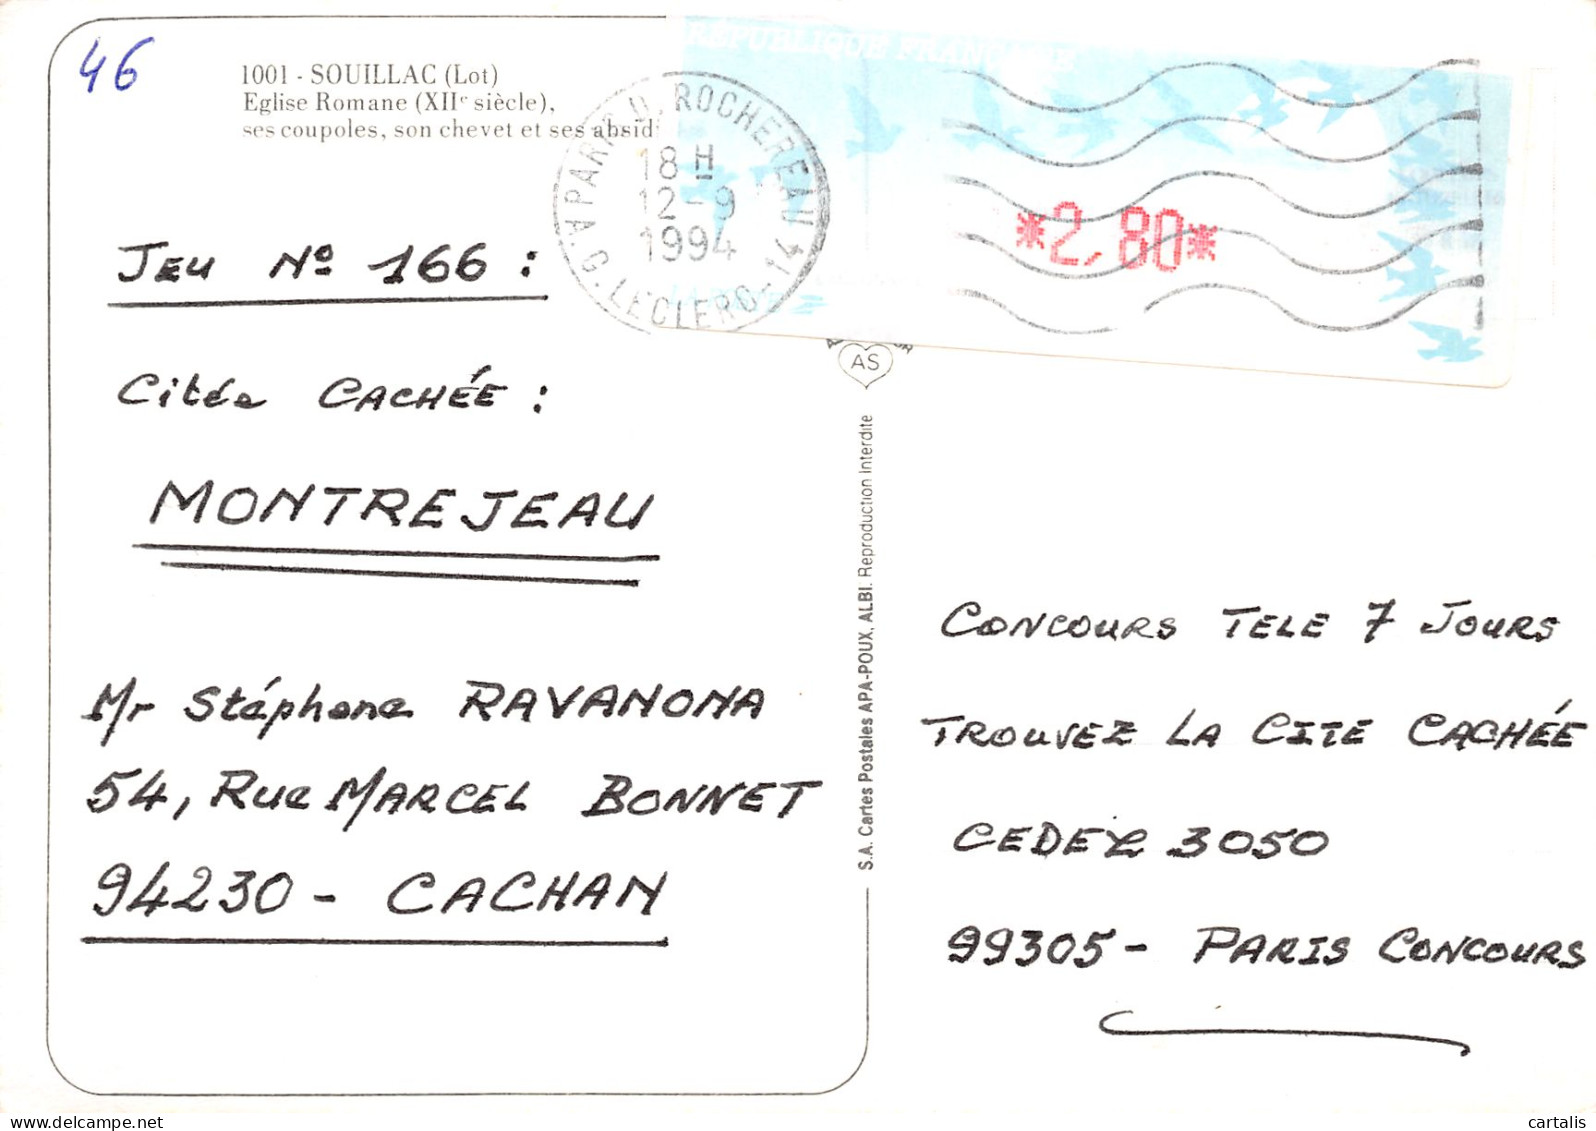 46
1001 - SOUILLAC (Lot)
Eglise Romane (XIIe siècle),
ses coupoles, son chevet et ses absid
RÉPUBLIQUE FRANÇAISE
PARIS D. ROCHEREAU
18 H
12-9
1994
A.G. LECLERC-14
*2,80*
JEU Nº 166 :
Citée CACHÉE :
MONTREJEAU
Mr Stéphane RAVANONA
54, Rue MARCEL BONNET
94230 - CACHAN
AS
S.A. Cartes Postales APA-POUX, ALBI. Reproduction interdite
CONCOURS TELE 7 JOURS
TROUVEZ LA CITE CACHÉE
CEDEX 3050
99305 - PARIS CONCOURS
delcampe.net
cartalis